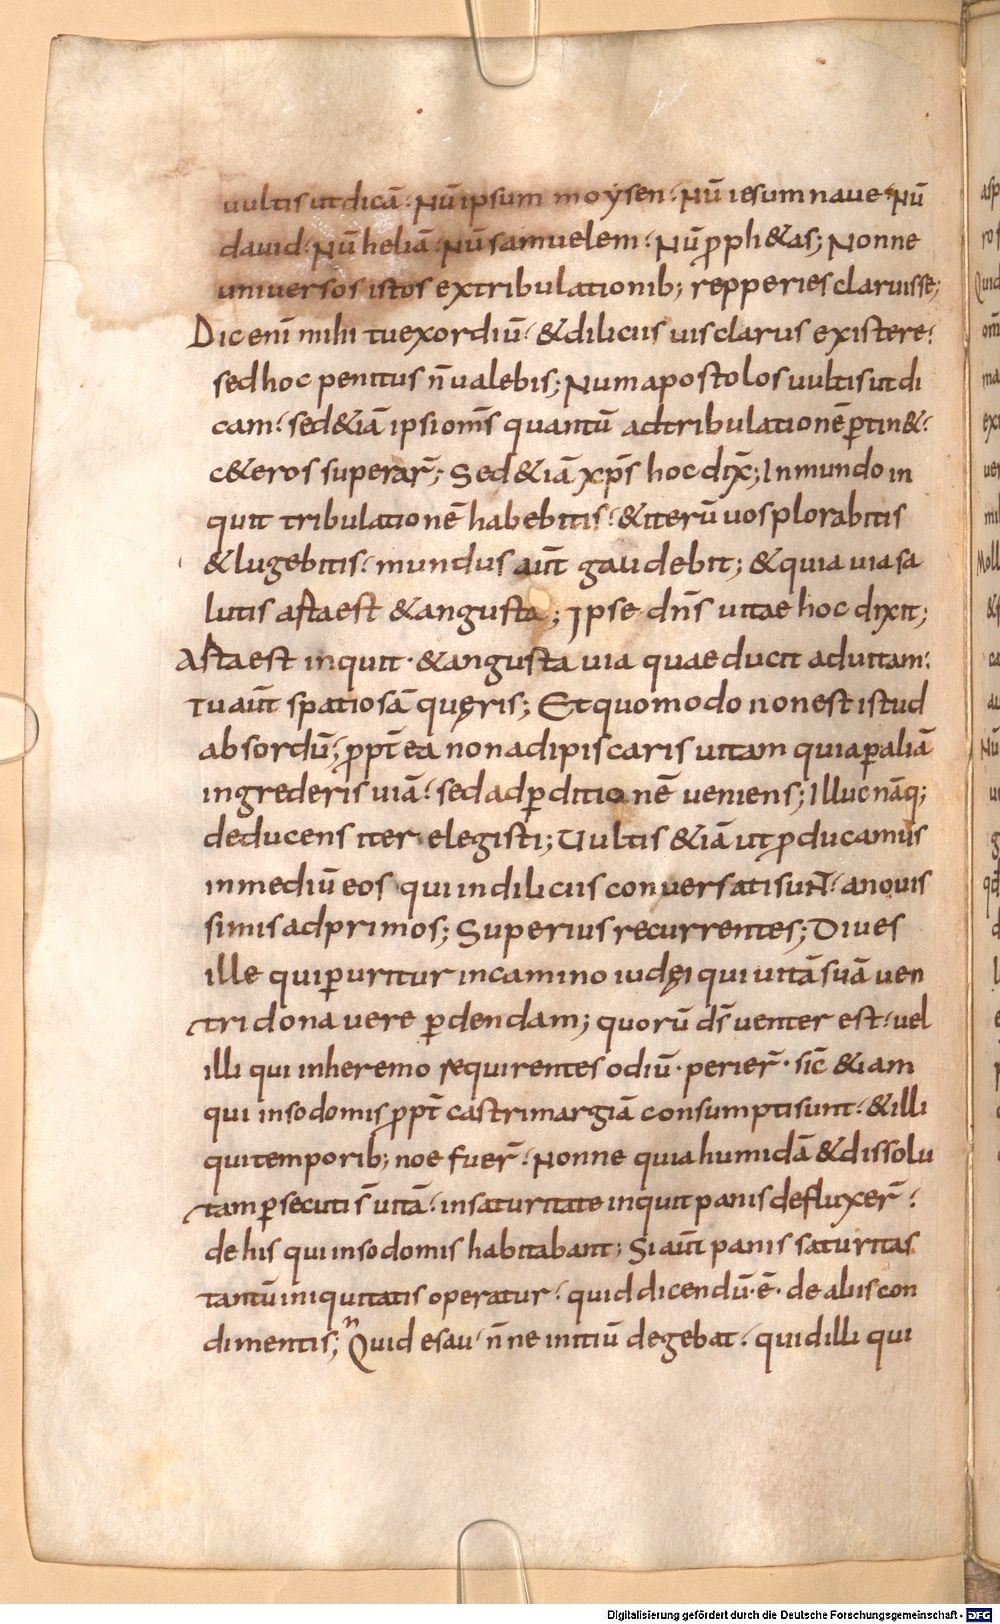 uultis ut dicā· Nū ipsum moysen· Nū iesum naue· Nū
dauid· Nū heliā· Nū samuelem· Nū ꝓph&as; Nonne
uniuersos istos ex tribulationib; repperies claruisse;
Dic enī mihi tu exordiū· & diliciis uis clarus existere·
sed hoc penitus n̄ ualebis; Num apostolos uultis ut di
cam· sed &iā ipsi om̄s quantū ad tribulationē ꝑtin&·
c&eros superar̄; Sed &iā xp̄s hoc dix̄; In mundo in
quit tribulationē habebitis· & iterū uos plorabitis
& lugebitis· mundus aūt gaudebit; & quia uia sa
lutis asta est & angusta; Ipse dn̄s uitae hoc dixit;
Asta est inquit· & angusta uia quae ducit ad uitam·
Tu aūt spatiosā quęris; Et quomodo non est istud
absordū; ꝓpt̄ ea non adipiscaris uitam quia ꝑ aliā
ingrederis uiā· sed ad ꝑditionē ueniens; Illuc nāq;
deducens iter elegisti; Uultis &iā ut ꝓducamus
in mediū eos qui in diliciis conuersati sunt· a nouis
simis ad primos; Superius recurrentes; Diues
ille qui ꝑuritur in camino iudęi qui uitā suā uen
tri dona uere ꝑdendam; quorū ds̄ uenter est· uel
illi qui in heremo requirentes odiū· perier̄· sic̄ &iam
qui in sodomis ꝓpt̄ castrimargiā consumpti sunt· & illi
qui temporib; noe fuer̄· Nonne quia humidā & dissolu
tam ꝑsecuti s̄ uitā· in saturitate inquit panis defluxer̄·
de his qui in sodomis habitabant; Si aūt panis saturitas
tantū iniquitatis operatur· quid dicendū· ē· de aliis con
dimentis; Quid esau· n̄ne in itiū degebat· quid illi qui
Digitalisierung gefördert durch die Deutsche Forschungsgemeinschaft - DFG